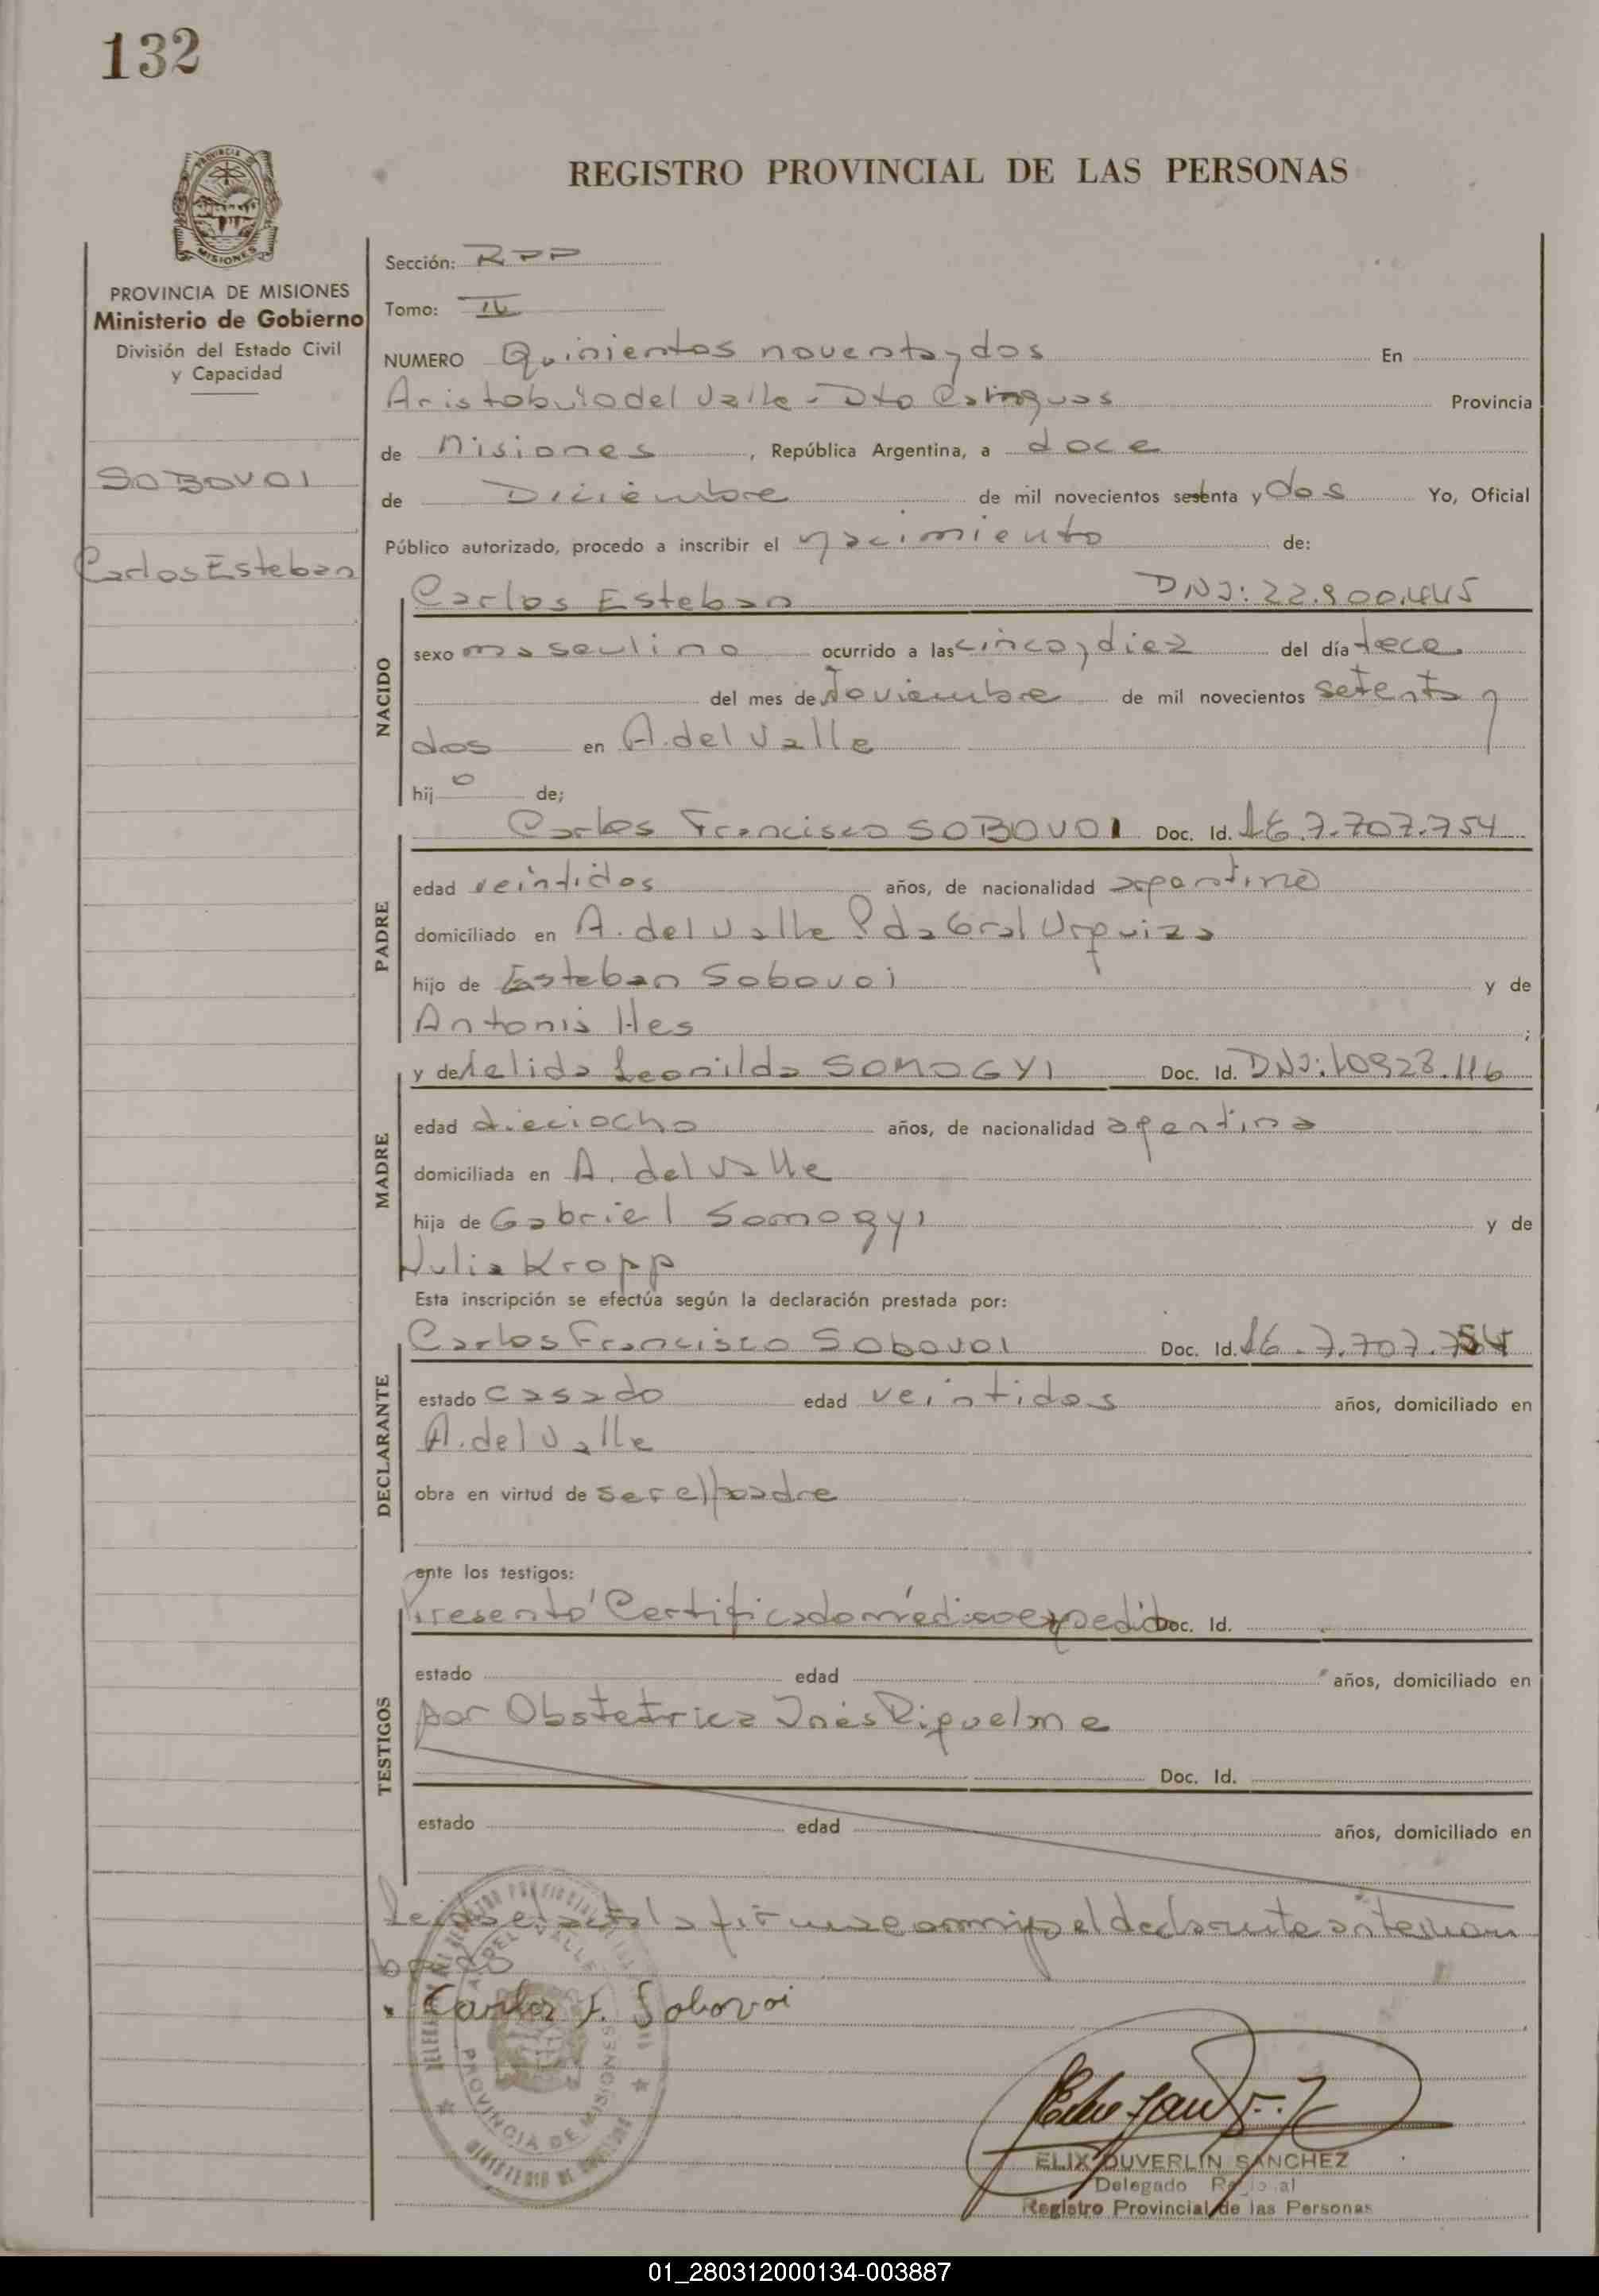 132
REGISTRO PROVINCIAL DE LAS PERSONAS
PROVINCIA DE MISIONES
Ministerio de Gobierno
División del Estado Civil
y Capacidad
SOBOVOI
Carlos Esteban
Sección: RPP
Tomo: IV
NUMERO Quinientos noventa y dos En
Aristobulo del Valle - Dto Cainguas Provincia
de Misiones, República Argentina, a doce
de Diciembre de mil novecientos setenta y dos Yo, Oficial
Público autorizado, procedo a inscribir el nacimiento de:
NACIDO
Carlos Esteban DNI: 22.900.445
sexo masculino ocurrido a las cinco y diez del día trece
del mes de Noviembre de mil novecientos setenta y
dos en A. del Valle
hijo de;
PADRE
Carlos Francisco SOBOVOI Doc. Id. 16.7.707.754
edad veintidos años, de nacionalidad argentino
domiciliado en A. del Valle Pda Gral Urquiza
hijo de Esteban Sobovoi y de
Antonia Hes ;
MADRE
y de Nelida Leonilda SOMOGYI Doc. Id. DNI: 10928.116
edad dieciocho años, de nacionalidad argentina
domiciliada en A. del Valle
hija de Gabriel Somogyi y de
Julia Kropp
Esta inscripción se efectúa según la declaración prestada por:
DECLARANTE
Carlos Francisco SOBOVOI Doc. Id. 16.7.707.754
estado casado edad veintidos años, domiciliado en
A. del Valle
obra en virtud de ser el padre
ante los testigos:
TESTIGOS
Presentó Certificado médico expedido Doc. Id.
estado edad años, domiciliado en
por Obstetrica Inés Riquelme
Doc. Id.
estado edad años, domiciliado en
Leida el acta la firma conmigo el declarante antenom
brado
Carlos F. Sobovoi
DEL VALLE
PROVINCIA DE MISIONES
ELIX DUVERLIN SANCHEZ
Delegado Regional
Registro Provincial de las Personas
01_280312000134-003887